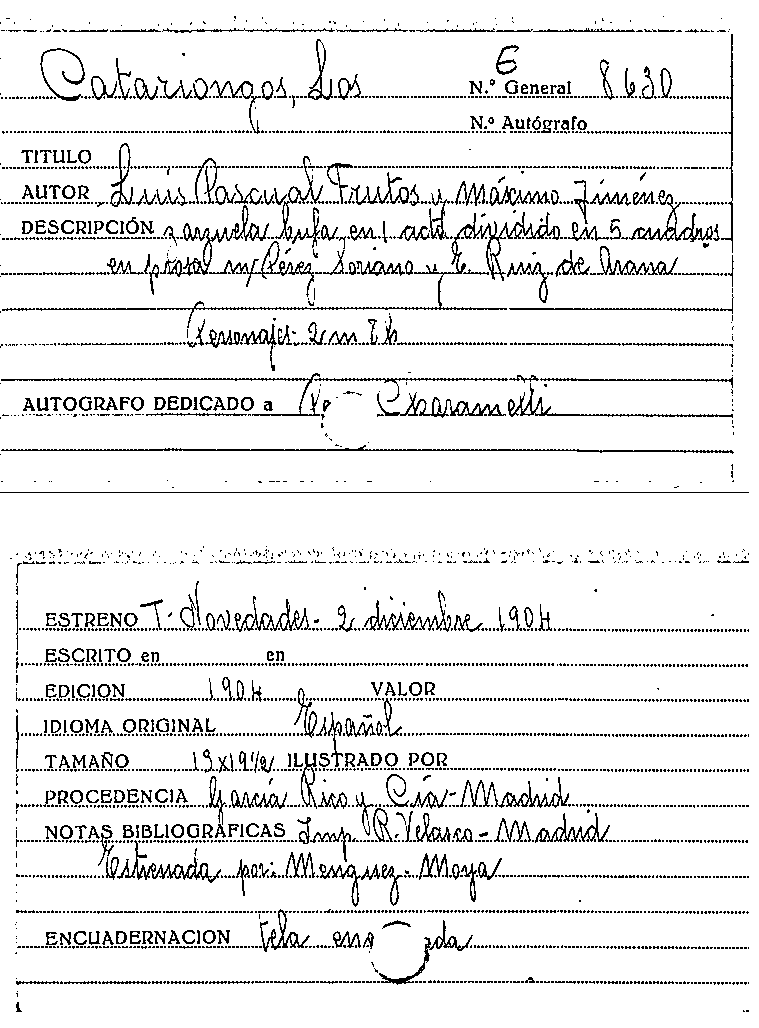 Catariongos, Los
E
N.º General 8630
N.º Autógrafo
TITULO
AUTOR Luis Pascual Frutos y Máximo Jiménez
DESCRIPCIÓN zarzuela bufa en 1 acto dividido en 5 cuadros
en prosa m/ Pérez Soriano y E. Ruiz de Arana
Personajes: 2 m 8 h
AUTOGRAFO DEDICADO a Charamelli
ESTRENO T. Novedades- 2 diciembre 1904
ESCRITO en en
EDICION 1904 VALOR
IDIOMA ORIGINAL Español
TAMAÑO 13x19½ ILUSTRADO POR
PROCEDENCIA García Rico y Cía-Madrid
NOTAS BIBLIOGRÁFICAS Imp. R. Velasco-Madrid
Estrenada por: Menguez-Moya
ENCUADERNACION tela